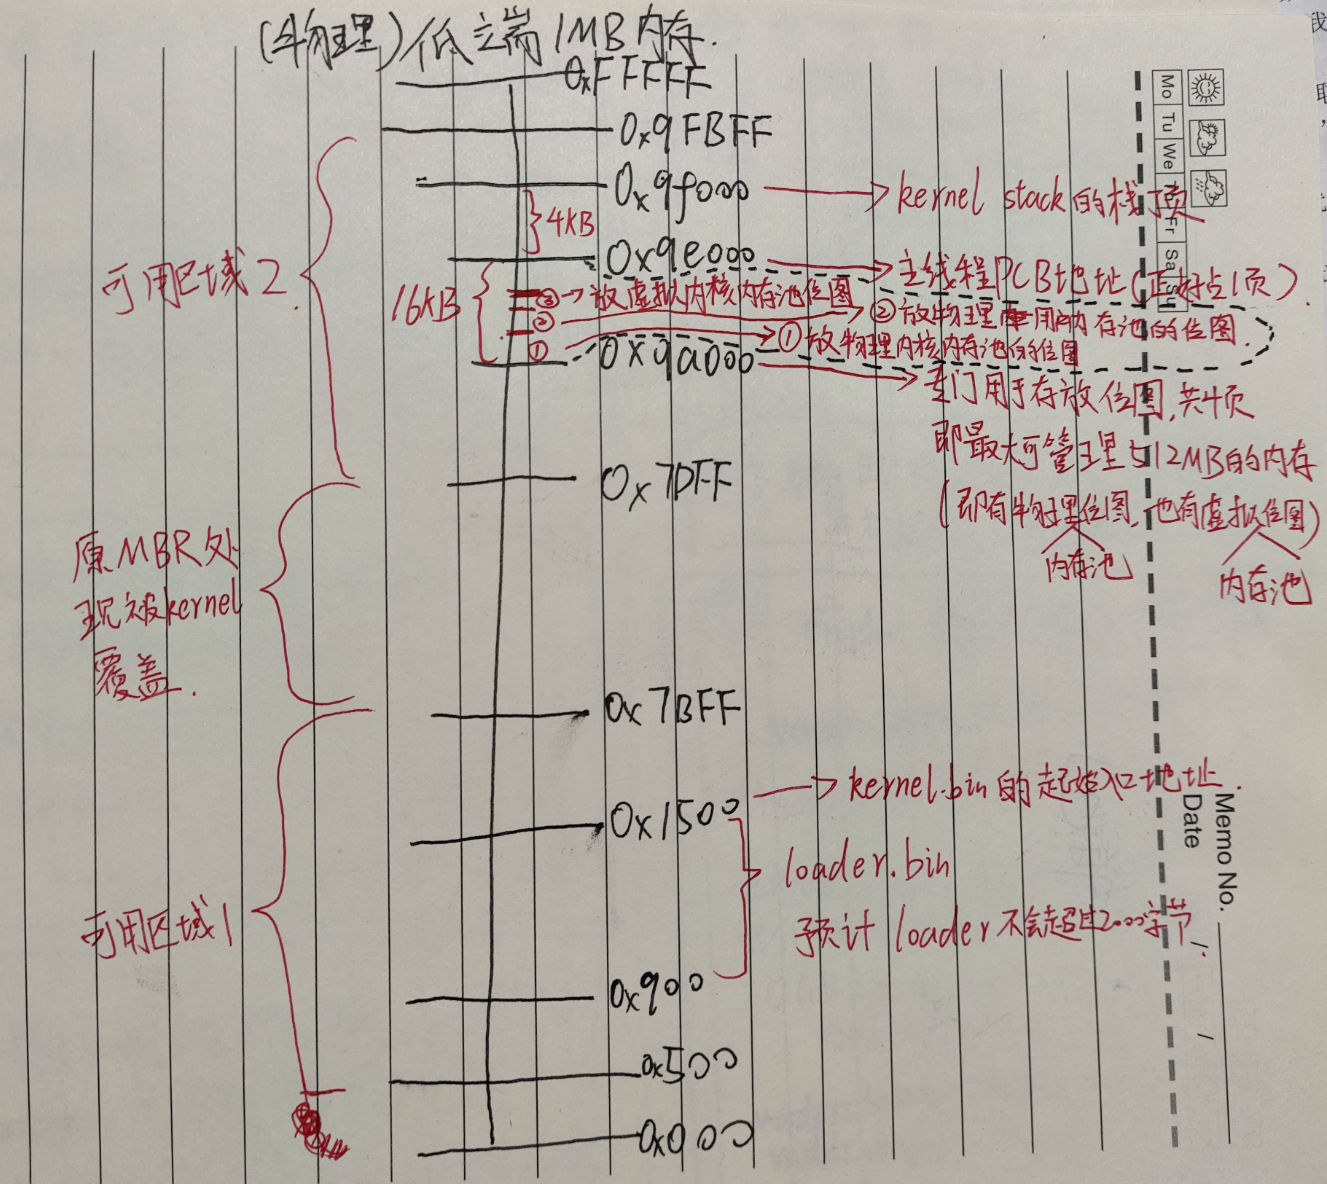 (物理)低端1MB内存.
0xFFFFF
0x9FBFF
0x9f000 → kernel stack的栈顶
4KB
0x9e000 → 主线程PCB地址(正好占1页).
可用区域2
16KB
③→放虚拟内核内存池位图
② ②放物理用户内存池的位图.
① ①放物理内核内存池的位图
0x9a000 → 专门用于存放位图,共4页
即最大可管理512MB的内存
(即有物理位图,也有虚拟位图)
内存池
内存池
0x7DFF
原MBR处
现被kernel
覆盖.
0x7BFF
0x1500 → kernel.bin的起始入口地址.
loader.bin
预计loader不会超过2000字节.
可用区域1
0x900
0x500
0x000
Mo Tu We Fr Sa Su
Memo No.
Date / /
我
取